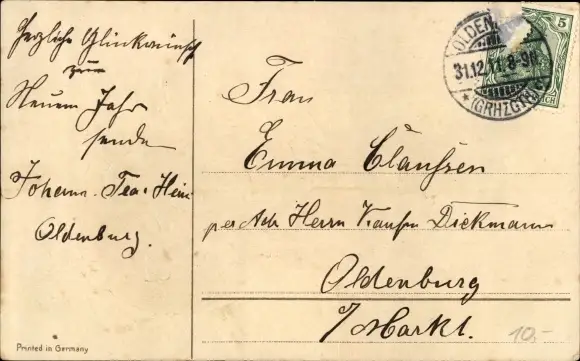 Herzliche Glückwünsch
zum
Neuem Jahr
sende
Johann. Tea. Hein
Oldenburg.
Printed in Germany
OLDEN
31.12.11. 8-9N
*(GRHZGT)*
5
Frau
Emma Claußen
per Adr Herrn Kaufm Dieckmann
Oldenburg
a/Markt.
10,-